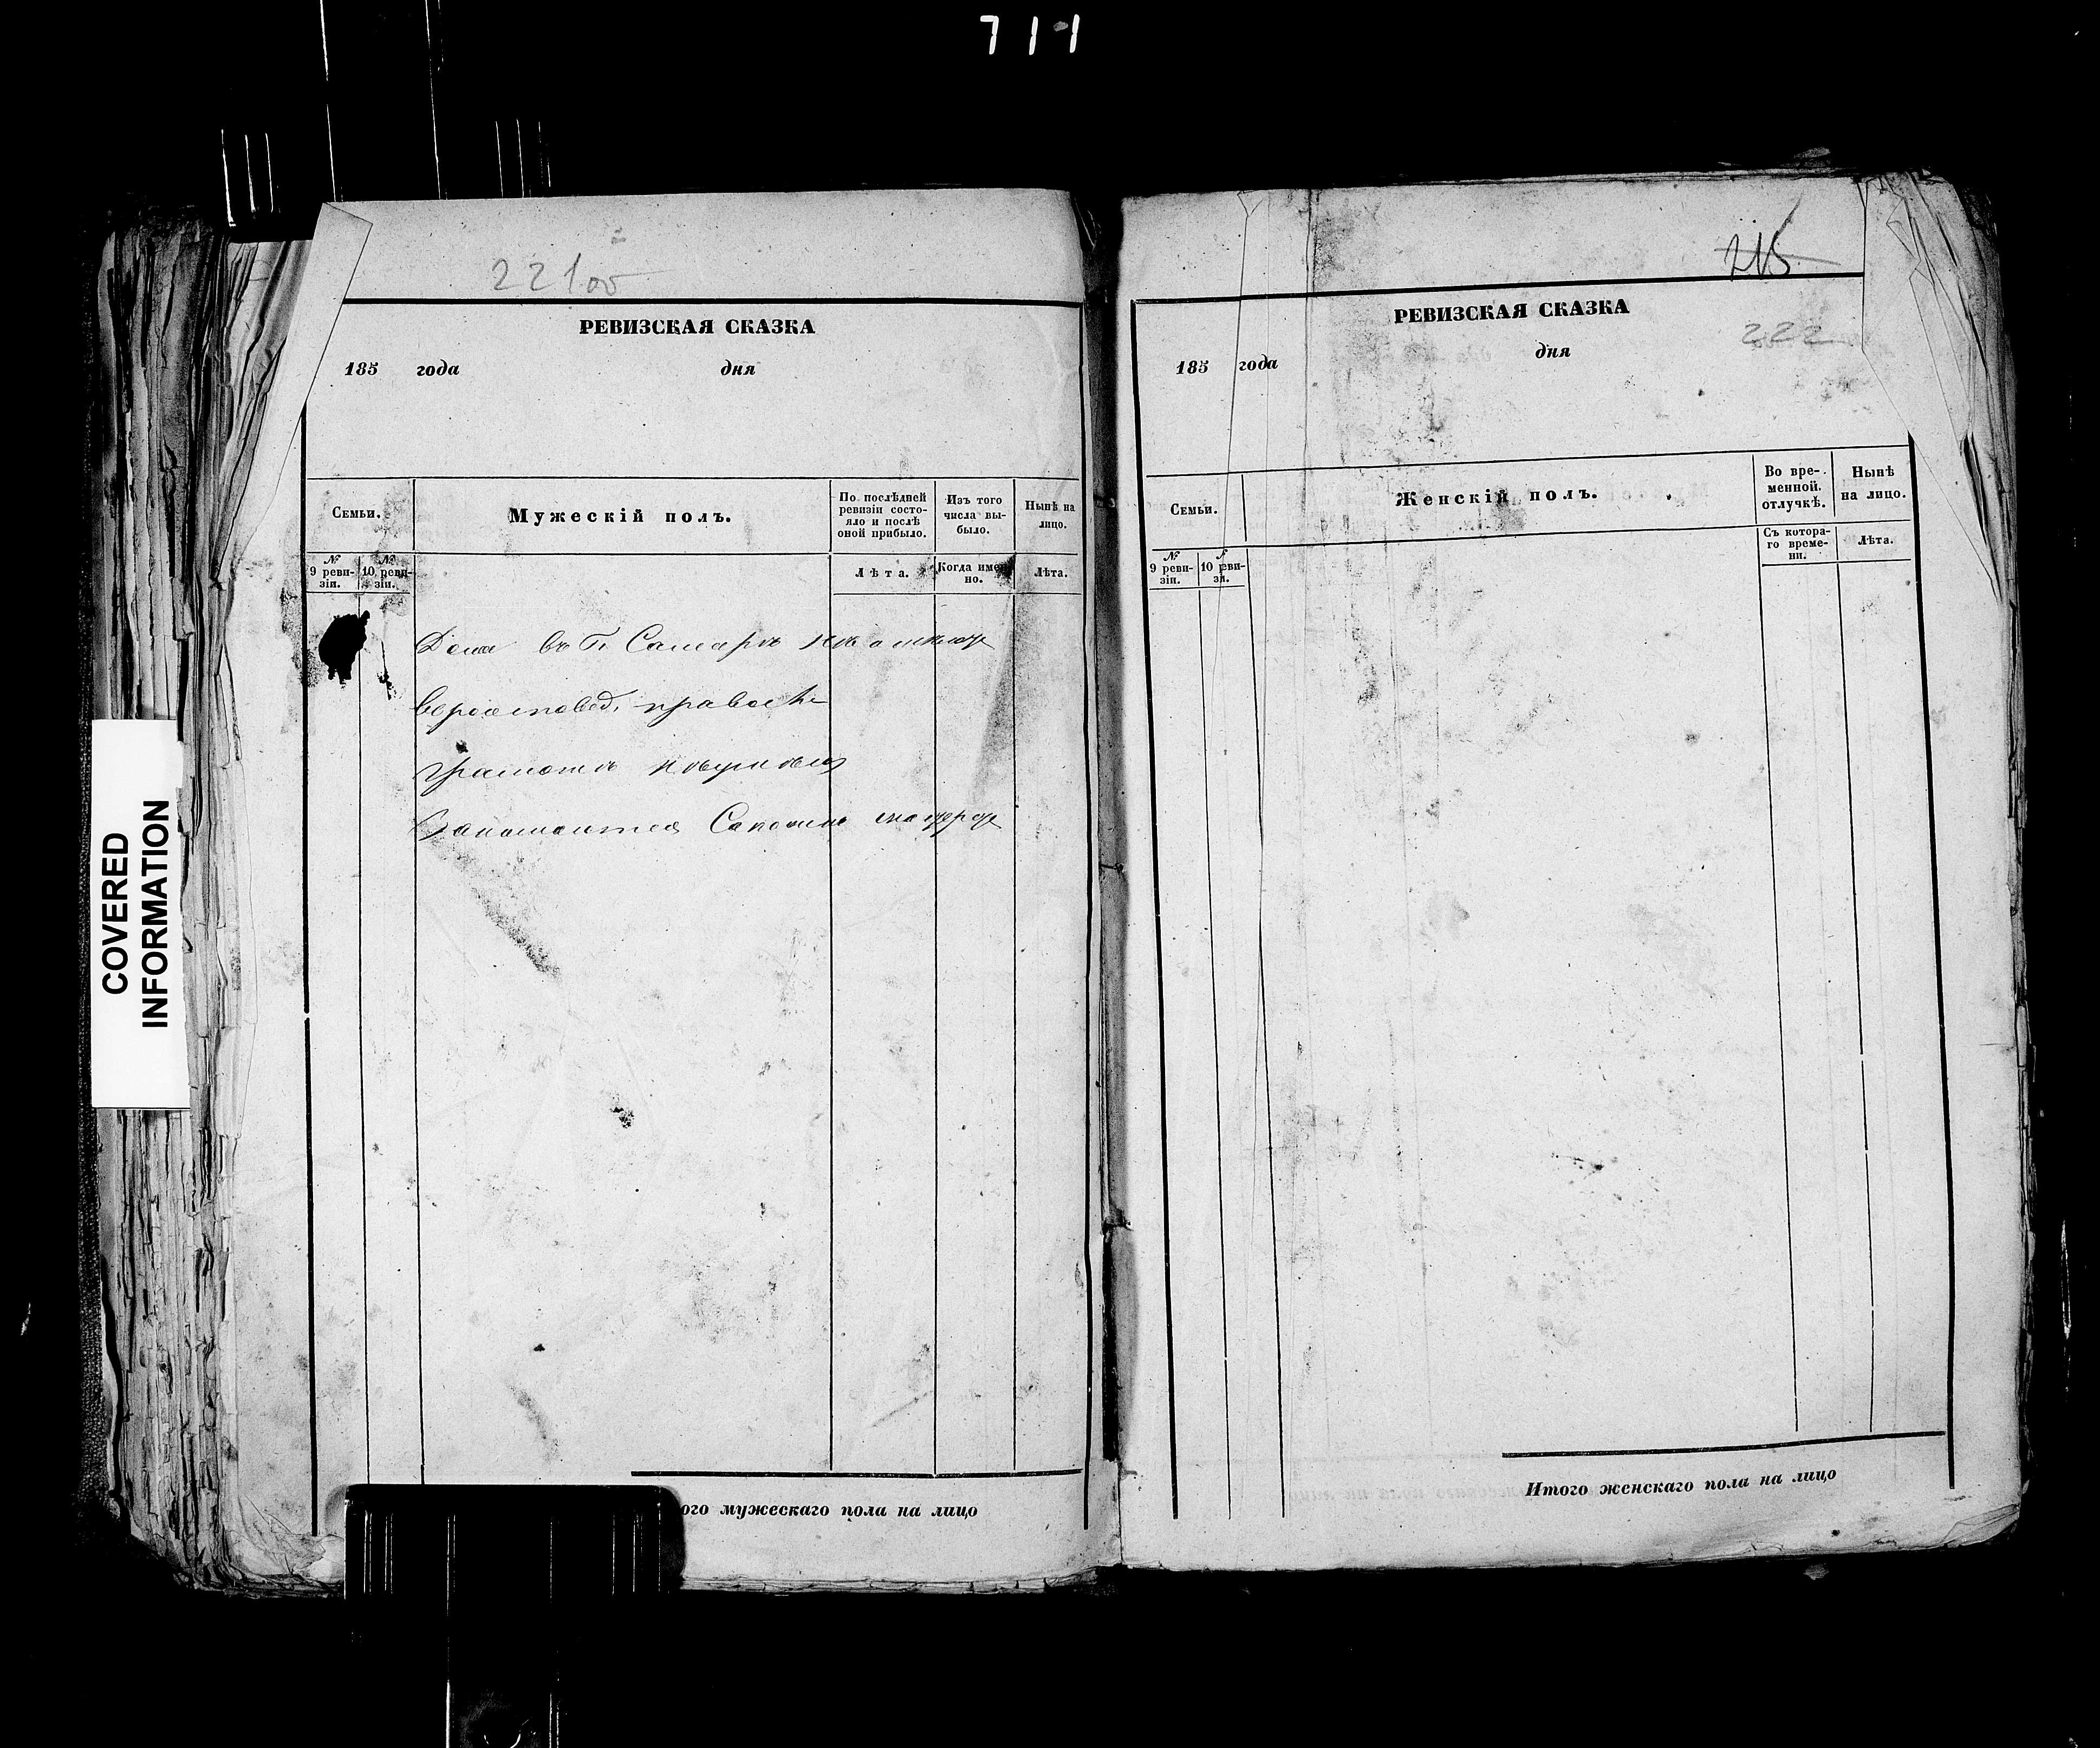 711
221об
РЕВИЗСКАЯ СКАЗКА
185 года дня
Семьи.
Мужескій полъ.
По послѣдней ревизіи состояло и послѣ оной прибыло.
Изъ того числа выбыло.
Нынѣ на лицо.
№ 9 ревизіи.
№ 10 ревизіи.
Лѣта.
Когда именно.
Лѣта.
Дома въ Г. Самарѣ не
вероисповед. правос
грамотѣ
Занимается Сапожн
ого мужескаго пола на лицо
215
РЕВИЗСКАЯ СКАЗКА
222
185 года дня
Семьи.
Женскій полъ.
Во временной отлучкѣ.
Нынѣ на лицо.
№ 9 ревизіи.
10 ревизі.
Съ котораго времени.
Лѣта.
Итого женскаго пола на лицо
COVERED
INFORMATION